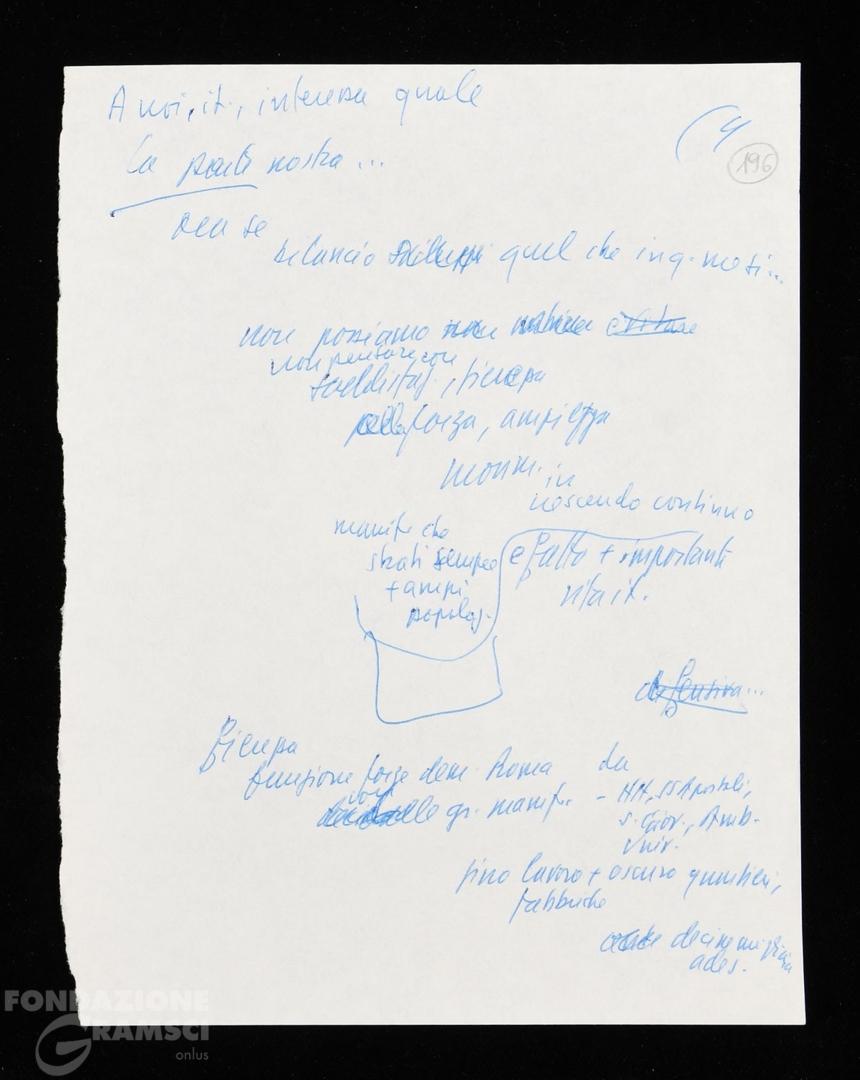 A noi, it., interessa quale
(4
196
la parte nostra...
bilancio quel che
non possiamo
non pensare con
soddisfaz., fierezza
forza, ampiezza
movim. in
crescendo continuo
manif. che
strati sempre
+ ampi
popolaz.
e fatto + importante
vita it.
difensiva...
Fierezza
funzione forze dem. Roma
gr. manif.
da
- SS Apostoli,
S. Giov., Amb.
Univ.
fino lavoro + oscuro quartieri,
fabbriche
decine migliaia
ades.
FONDAZIONE
GRAMSCI
onlus